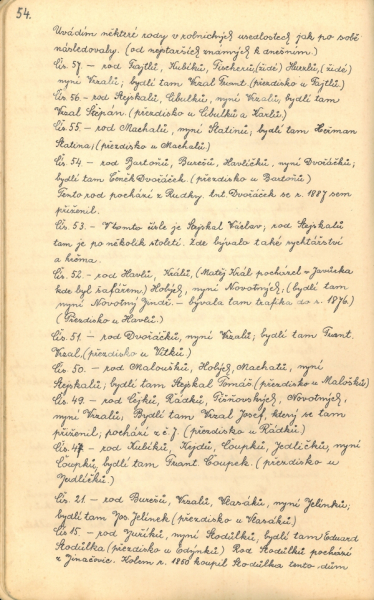 54.
Uvádím některé rody v rolnických usedlostech jak po sobě
následovaly. (od nejstarších známých k dnešním)
Čís. 57. - rod Fajtlů, Kubíků, Fischerů, (židé) (židé)
nyní Vrzalů; bydlí tam Vrzal Frant. (přezdisko u Fajtlů)
Čís. 56. - rod Stejskalů, Cibulků, nyní Vrzalů, bydlí tam
Vrzal Štěpán. (přezdisko u Cibulků a Karlů)
Čís. 55. - rod Machalů, nyní Slatinů; bydlí tam Heřman
Slatina; (přezdisko u Machalů)
Čís. 54 - rod Bartoňů, Burešů, Havlíčků, nyní Dvořáčků;
bydlí tam Čeněk Dvořáček (přezdisko u Bartoňů)
Tento rod pochází z Rudky. Ant. Dvořáček se r. 1887 sem
přiženil.
Čís. 53. - V tomto čísle je Stejskal Václav; rod Stejskalů
tam je po několik století. Zde bývalo také rychtářství
a krčma.
Čís. 52. - rod Havlů, Králů, (Matěj Král pocházel z
kde byl šafářem) Holých, nyní Novotných; (bydlí tam
nyní Novotný Jindř. - bývala tam trafika do r. 1876.)
(Přezdisko u Havlů.)
Čís. 51. - rod Dvořáčků, nyní Vrzalů; bydlí tam Frant.
Vrzal. (přezdisko u Vítků)
Čís. 50. - rod Maloušků, Holých, Machatů, nyní
Stejskalů; bydlí tam Stejskal Tomáš (přezdisko u Malošků)
Čís. 49. - rod Cejků, Rádků, Říňovských, Novotných,
nyní Vrzalů. Bydlí tam Vrzal Josef, který se tam
přiženil; pochází z č. 7. (přezdisko u Rádků)
Čís. 47 - rod Kubíků, Krejdů, Coupků, Jedličků, nyní
Coupků, bydlí tam Frant. Coupek. (přezdisko u
Jedličků.)
Čís. 21. - rod Burešů, Vrzalů, Vlasáků, nyní Jelínků,
bydlí tam Jos. Jelínek (přezdisko u Vlasáků)
Čís 15. - rod Juříků, nyní Stodůlků, bydlí tam Eduard
Stodůlka (přezdisko u Edýnků) Rod Stodůlků pochází
z Jinačovic. Kolem r. 1850 koupil Stodůlka tento dům